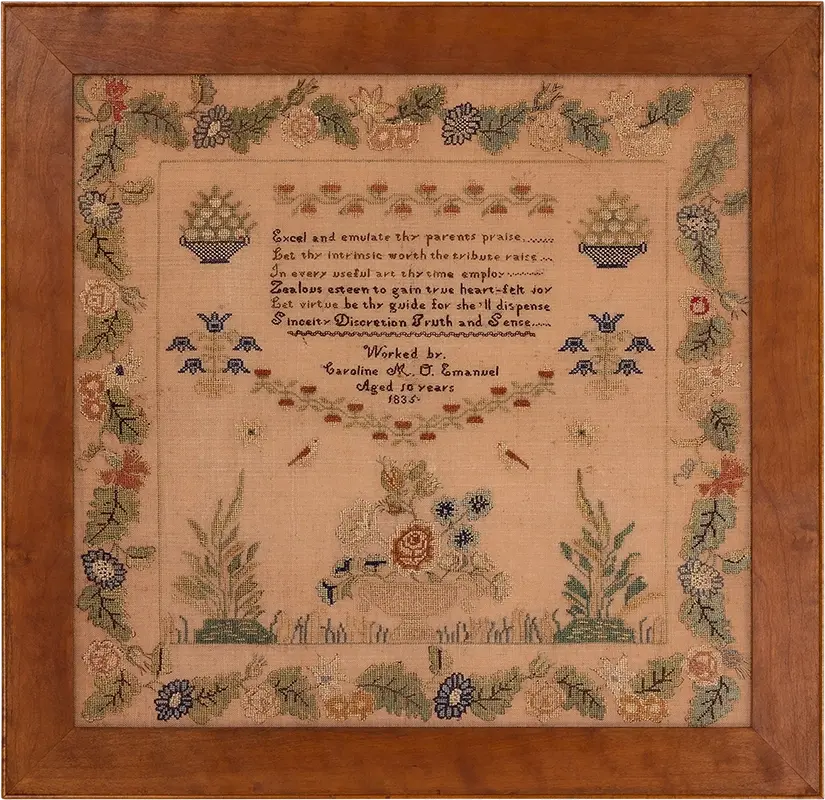 Excel and emulate thy parents praise........
Let thy intrinsic worth the tribute raise...
In every useful art thy time employ........
Zealous esteen to gain true heart-felt joy
Let virtue be thy guide for she'll dispense
Sinceity Discretion Truth and Sense.....
Worked by.
Caroline M. O. Emanuel
Aged 10 years
1835